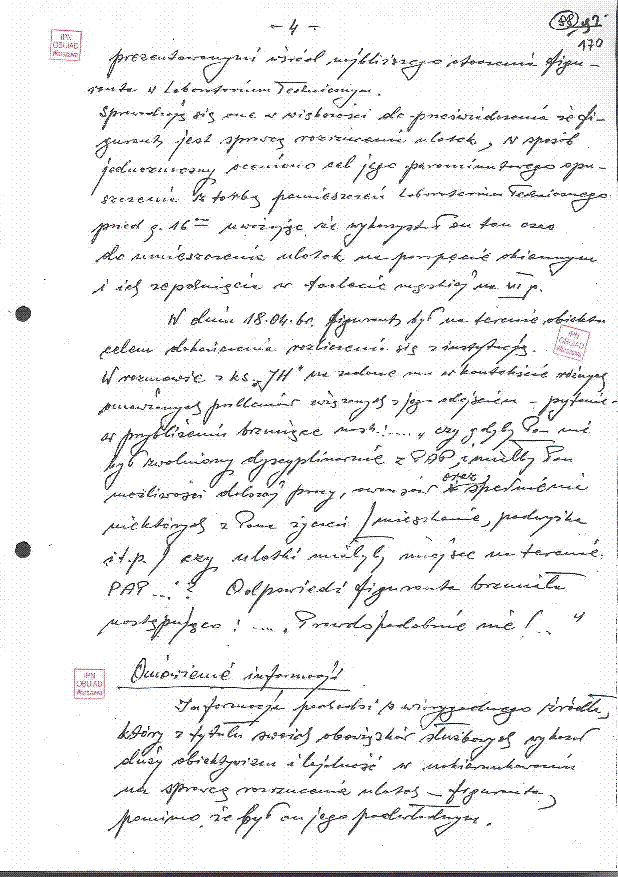 - 4 -
88
170
IPN
OBUiAD
Warszawa
prezentowanymi wśród najbliższego otoczenia figu-
ranta w Laboratorium Technicznym.
Sprowadzają się one w większości do przeświadczenia że fi-
gurant jest sprawcą rozrzucenia ulotek, w sposób
jednoznaczny oceniono cel jego parominutowego opu-
szczenia z torbą pomieszczeń Laboratorium Technicznego
przed g. 16⁰⁰ uważając że wykorzystał on ten czas
do umieszczenia ulotek na parapecie okiennym
i ich zapalnięcia w toalecie męskiej na VI p.
W dniu 18.04.br. figurant był na terenie obiektu
celem dokończenia rozliczenia się z instytucją.
IPN
OBUiAD
Warszawa
W rozmowie z ks. "JH" na zadane mu w kontekście różnych
omawianych problemów związanych z jego odejściem - pytanie -
w przybliżeniu brzmiące nast.: ...., czy gdyby Pan nie
był zwolniony dyscyplinarnie z PAP, miałby Pan
możliwości dalszej pracy, awansów oraz spełnienie
niektórych z Pana życzeń /mieszkanie, podwyżka
itp./ czy ulotki miałyby miejsce na terenie
PAP ..."? Odpowiedź figuranta brzmiała
następująco: .... "Prawdopodobnie nie! .. "
IPN
OBUiAD
Warszawa
Omówienie informacji
Informacja pochodzi z wiarygodnego źródła,
który z tytułu swoich obowiązków służbowych wykazał
duży obiektywizm i lojalność w ukierunkowaniu
na sprawcę rozrzucenia ulotek - figuranta,
pomimo, że był on jego podwładnym.